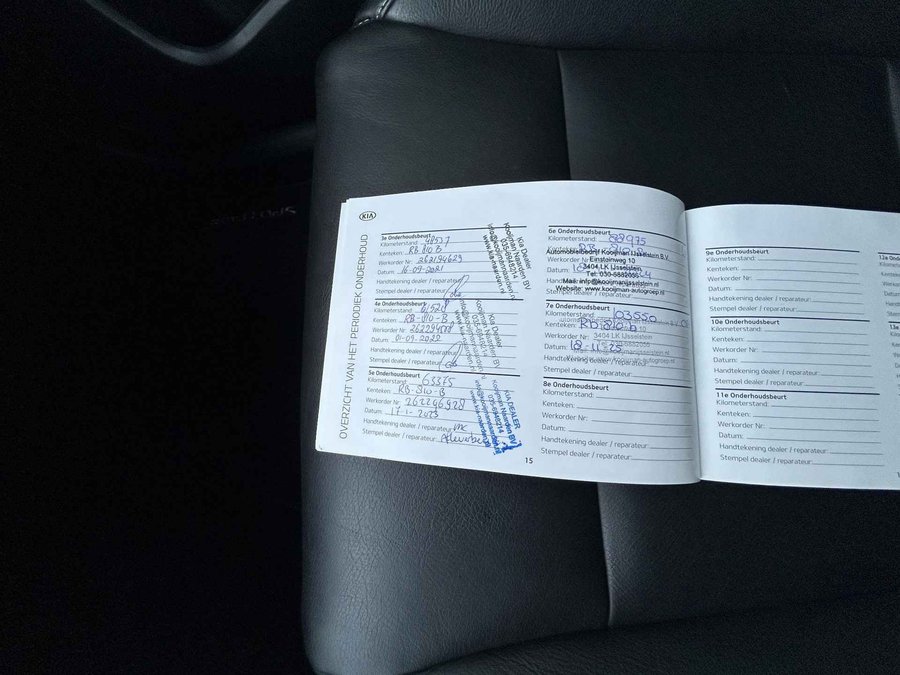 KIA
OVERZICHT VAN HET PERIODIEK ONDERHOUD
3e Onderhoudsbeurt
Kilometerstand: 48527
Kenteken: RB 810 B
Werkorder Nr: 262194629
Datum: 16-09-2021
Handtekening dealer / reparateur:
Stempel dealer / reparateur:
Kia Dealer
Kooijman Naarden BV
www.kianaarden.nl
4e Onderhoudsbeurt
Kilometerstand: 61528
Kenteken: RB-810-B
Werkorder Nr:
Datum: 01-09-2022
Handtekening dealer / reparateur:
Stempel dealer / reparateur:
Kia Dealer
Kooijman Naarden BV
5e Onderhoudsbeurt
Kilometerstand: 65375
Kenteken: RB-810-B
Werkorder Nr: 262296928
Datum: 17-1-2023
Handtekening dealer / reparateur:
Stempel dealer / reparateur:
KIA DEALER
Kooijman Naarden BV
15
6e Onderhoudsbeurt
Kilometerstand:
Kenteken:
Automobielbedrijf Kooijman IJsselstein B.V.
Einsteinweg 10
3404 LK IJsselstein
Tel: 030-6882055
Mail: info@kooijmanijsselstein.nl
Website: www.kooijman-autogroep.nl
7e Onderhoudsbeurt
Kilometerstand: 103550
Kenteken: RB 810 b
Werkorder Nr:
3404 LK IJsselstein
Datum: 18-11-25
Handtekening dealer / reparateur:
Stempel dealer / reparateur:
8e Onderhoudsbeurt
Kilometerstand:
Kenteken:
Werkorder Nr:
Datum:
Handtekening dealer / reparateur:
Stempel dealer / reparateur:
9e Onderhoudsbeurt
Kilometerstand:
Kenteken:
Werkorder Nr:
Datum:
Handtekening dealer / reparateur:
Stempel dealer / reparateur:
10e Onderhoudsbeurt
Kilometerstand:
Kenteken:
Werkorder Nr:
Datum:
Handtekening dealer / reparateur:
Stempel dealer / reparateur:
11e Onderhoudsbeurt
Kilometerstand:
Kenteken:
Werkorder Nr:
Datum:
Handtekening dealer / reparateur:
Stempel dealer / reparateur: